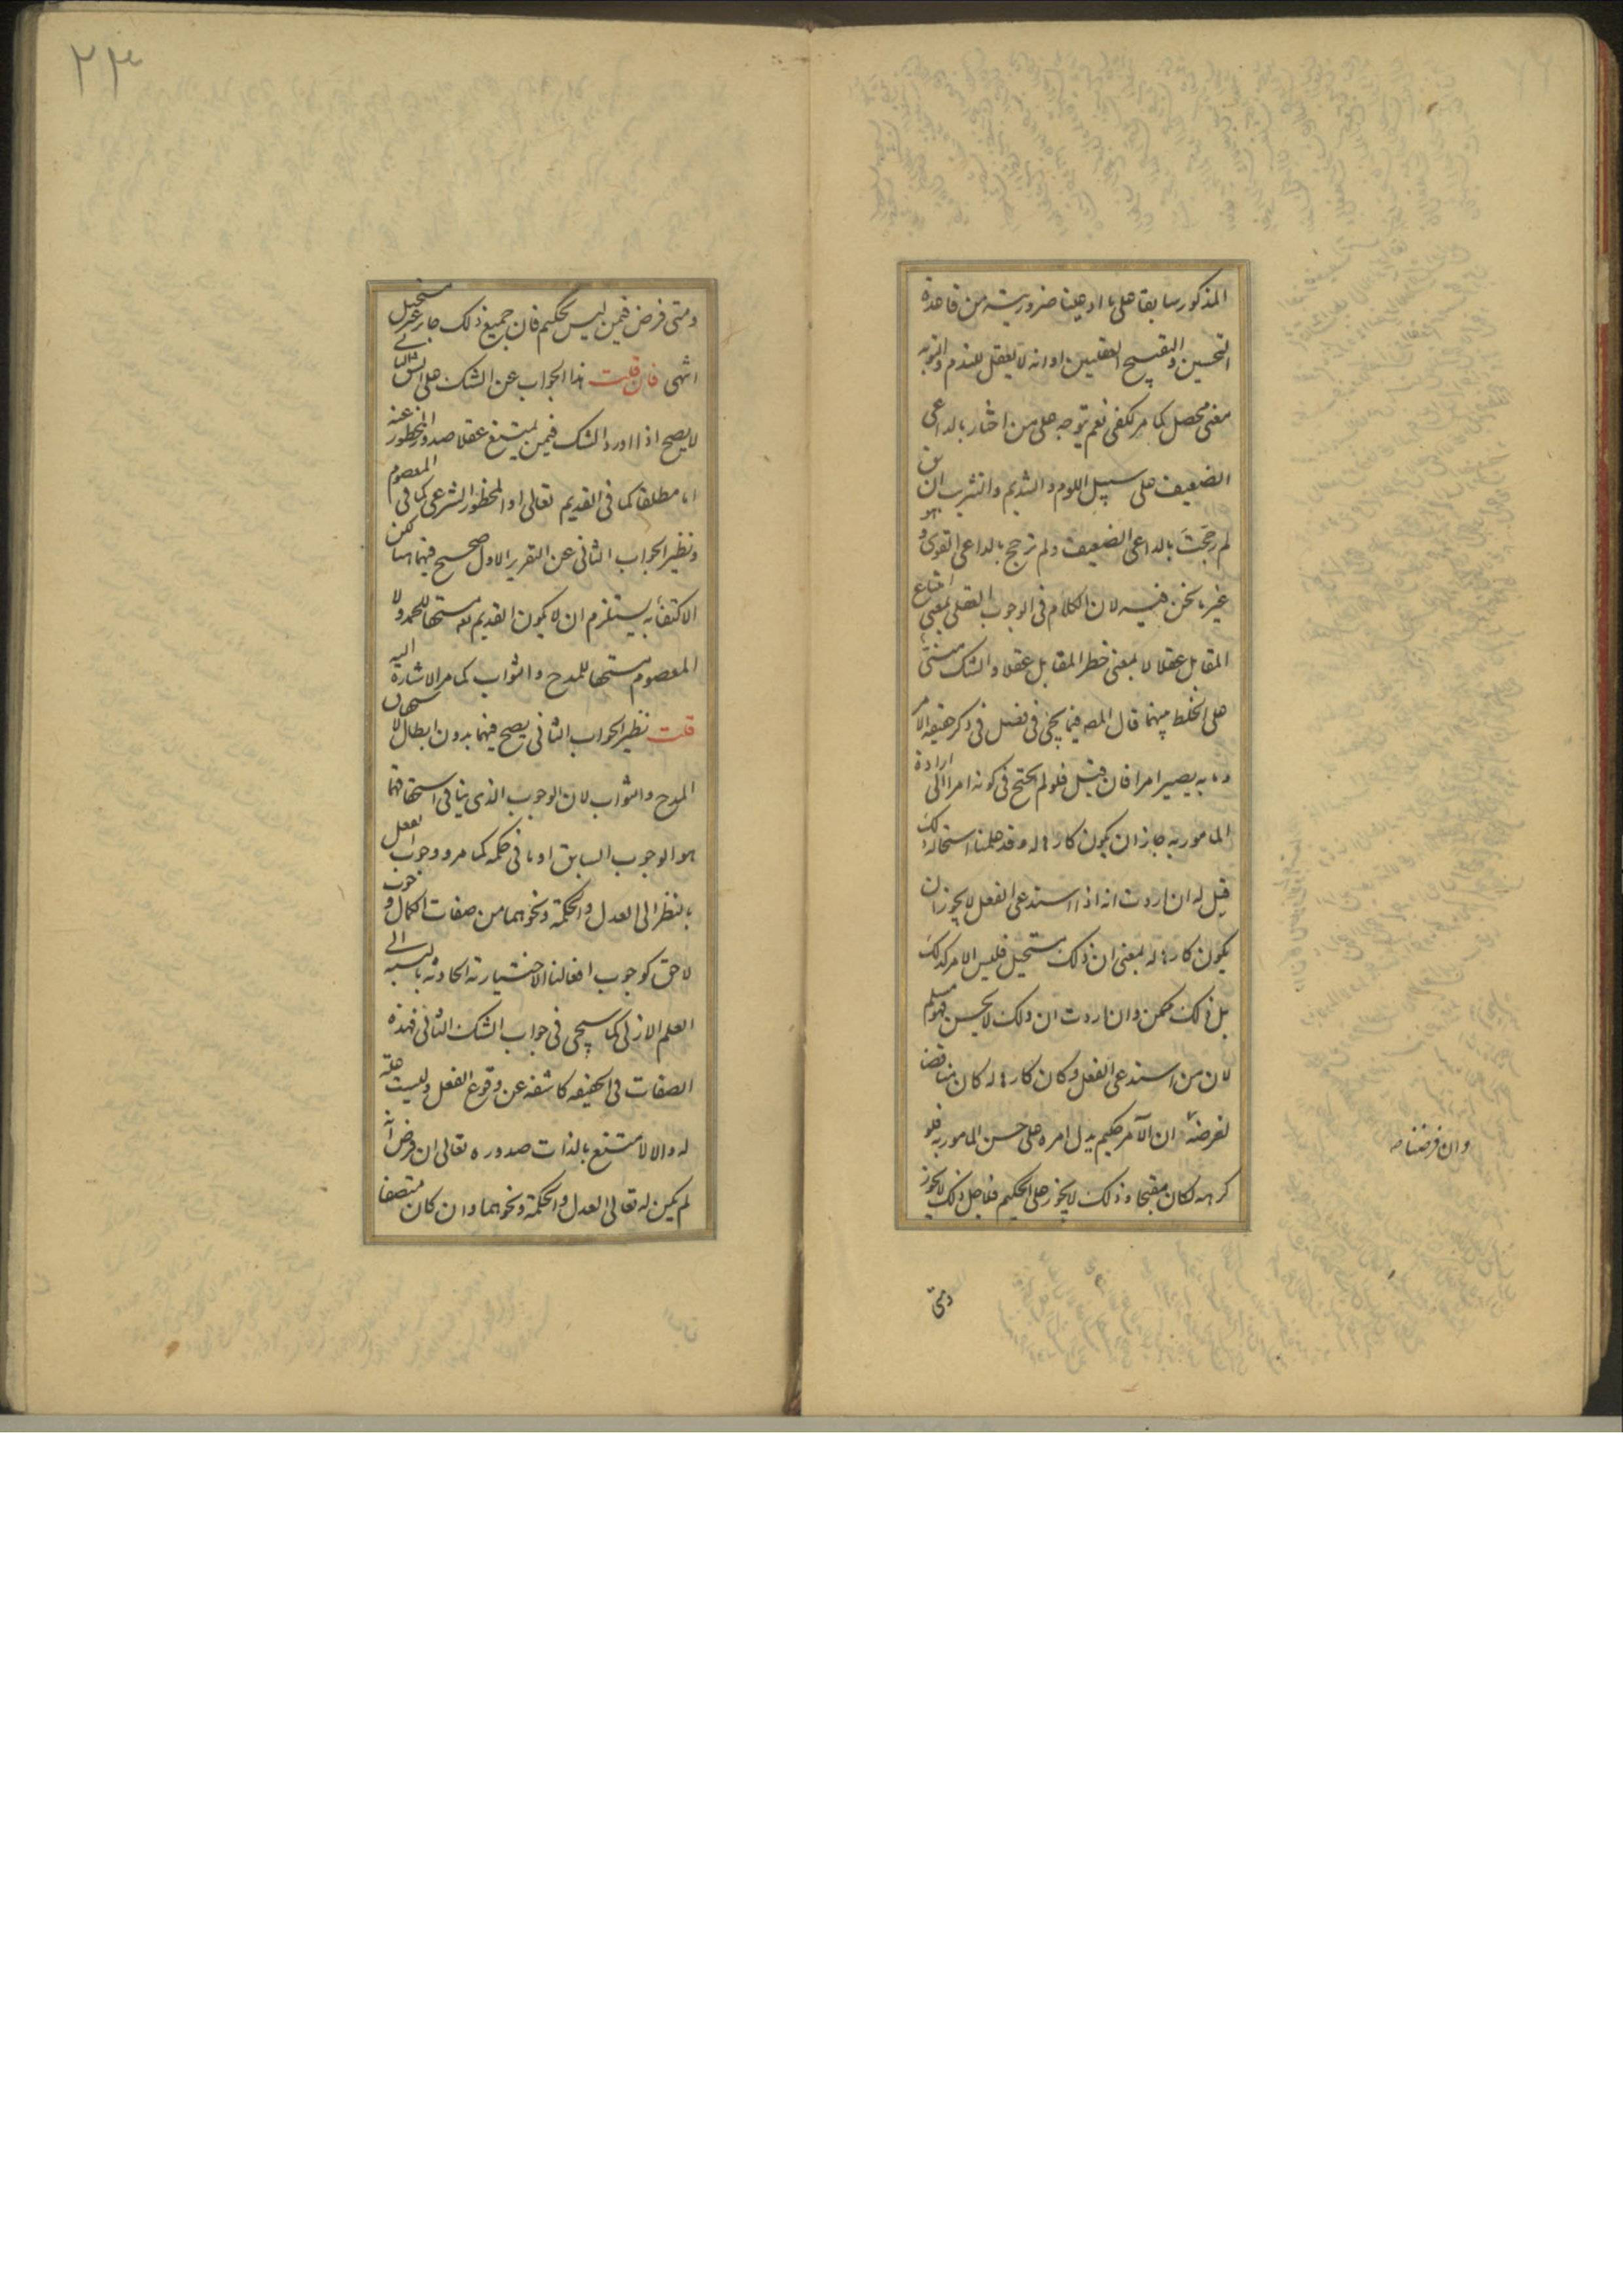 المذكور سابقا على ما ادعينا ضروريته من قاعدة
التحسين والتقبيح العقليين او انه لا يعقل للندم والتوبه
معنى محصل كما مر لكفى نعم يتوجه على من اختار بالداعى
الضعيف على سبيل اللوم والتنديم والتثريب ان يق
لم رجحت بالداعى الضعيف ولم ترجح بالداعى القوى وهو
غير ما نحن فيه لان الكلام فى الوجوب العقلى بمعنى امتناع
المقابل عقلا لا بمعنى حظر المقابل عقلا والشك مبنى
على الخلط بينهما قال المص فيما يجئ فى فصل فى ذكر حقيقه الامر
وما به يصير امرا فان قيل فلو لم يحتج فى كونه امرا الى ارادة
المامور به جاز ان يكون كارها له وقد علمنا استحالة ذلك
قيل له ان اردت انه اذا استدعى الفعل لا يجوز ان
يكون كارها له بمعنى ان ذلك مستحيل فليس الامر كذلك
بل ذلك ممكن وان اردت ان ذلك لا يحسن فهو مسلم
لان من استدعى الفعل وكان كارها له كان مناقضا
لغرضه ان الآمر حكيم يدل امره على حسن المامور به فلو
كرهه لكان مقبحا وذلك لا يجوز على الحكيم فلاجل ذلك لا يجوز
وان فرضنا صه
ومتى
٢٣
ومتى فرض فيمن ليس بحكيم فان جميع ذلك جاز غير مستحيل
انتهى فان قلت هذا الجواب عن الشك على
لا يصح اذا اورد الشك فيمن يمتنع عقلا صدور المحظور عنه
اما مطلقا كما فى القديم تعالى او المحظور الشرعى كما فى المعصوم
ونظير الجواب الثانى عن التقرير الاول صحيح فيهما لكن
الاكتفاء به يستلزم ان لا يكون القديم تعه مستحقا للحمد ولا
المعصوم مستحقا للمدح والثواب كما مر الاشارة اليه
قلت نظير الجواب الثانى يصح فيهما بدون ابطال لاستحقاق
المدح والثواب لان الوجوب الذى ينافى استحقاقهما
هو الوجوب السابق او ما فى حكمه كما مر ووجوب الفعل
بالنظر الى العدل والحكمة ونحوهما من صفات الكمال وجوب
لاحق كوجوب افعالنا الاختيارية الحادثه بالنسبه الى
العلم الازلى كما سيجئ فى جواب الشك الثانى فهذه
الصفات فى الحقيقه كاشفه عن وقوع الفعل وليست علة
له والا لامتنع بالذات صدوره تعالى ان فرض انه
لم يكن له تعالى العدل والحكمة ونحوهما وان كان متصفا